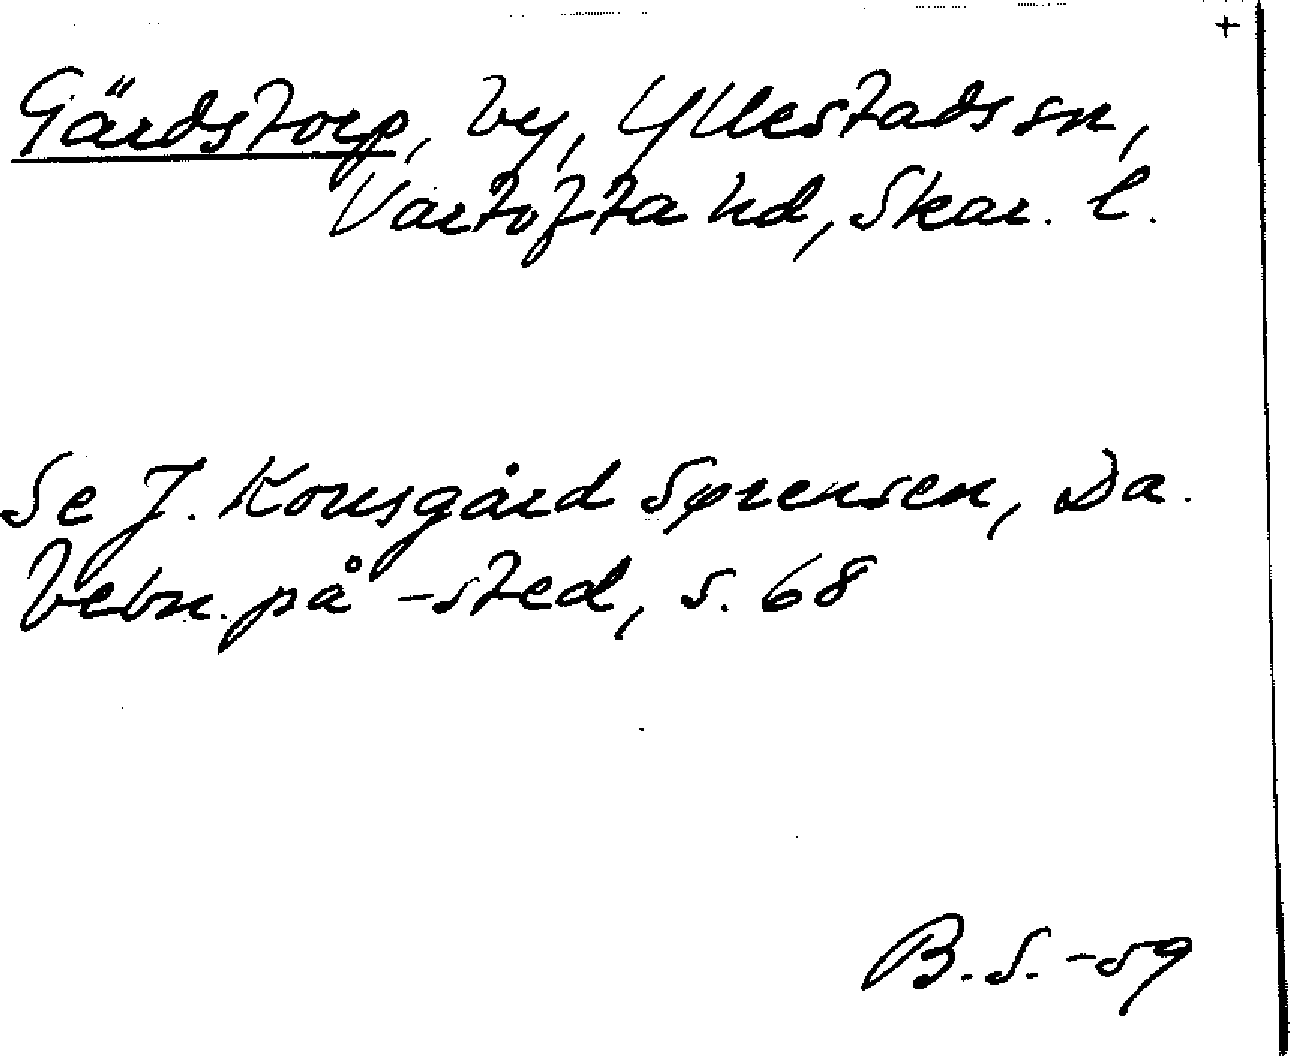 +
Gärdstorp, by, Yllestads sn,
Vartofta hd, Skar. l.
Se J. Kousgård Sørensen, Da.
bebn. på -sted, s. 68
B. S. -59